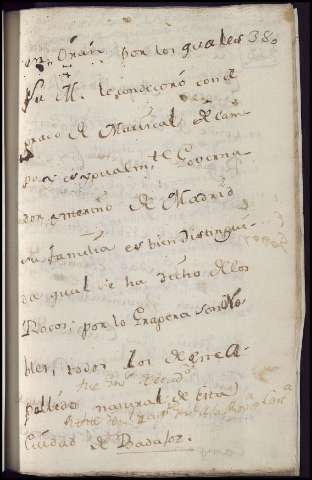 en Orán por los quales 380
Su M. le condecoró con el
grado de Mariscal de Cam
po y igualm.te Governa
dor interino de Madrid
su familia es bien distingui-
da qual se ha dicho de los
Rocos; por lo Grapera son No
bles, todos los de este A-
pellido natural de esta
Ciudad de Badajoz.